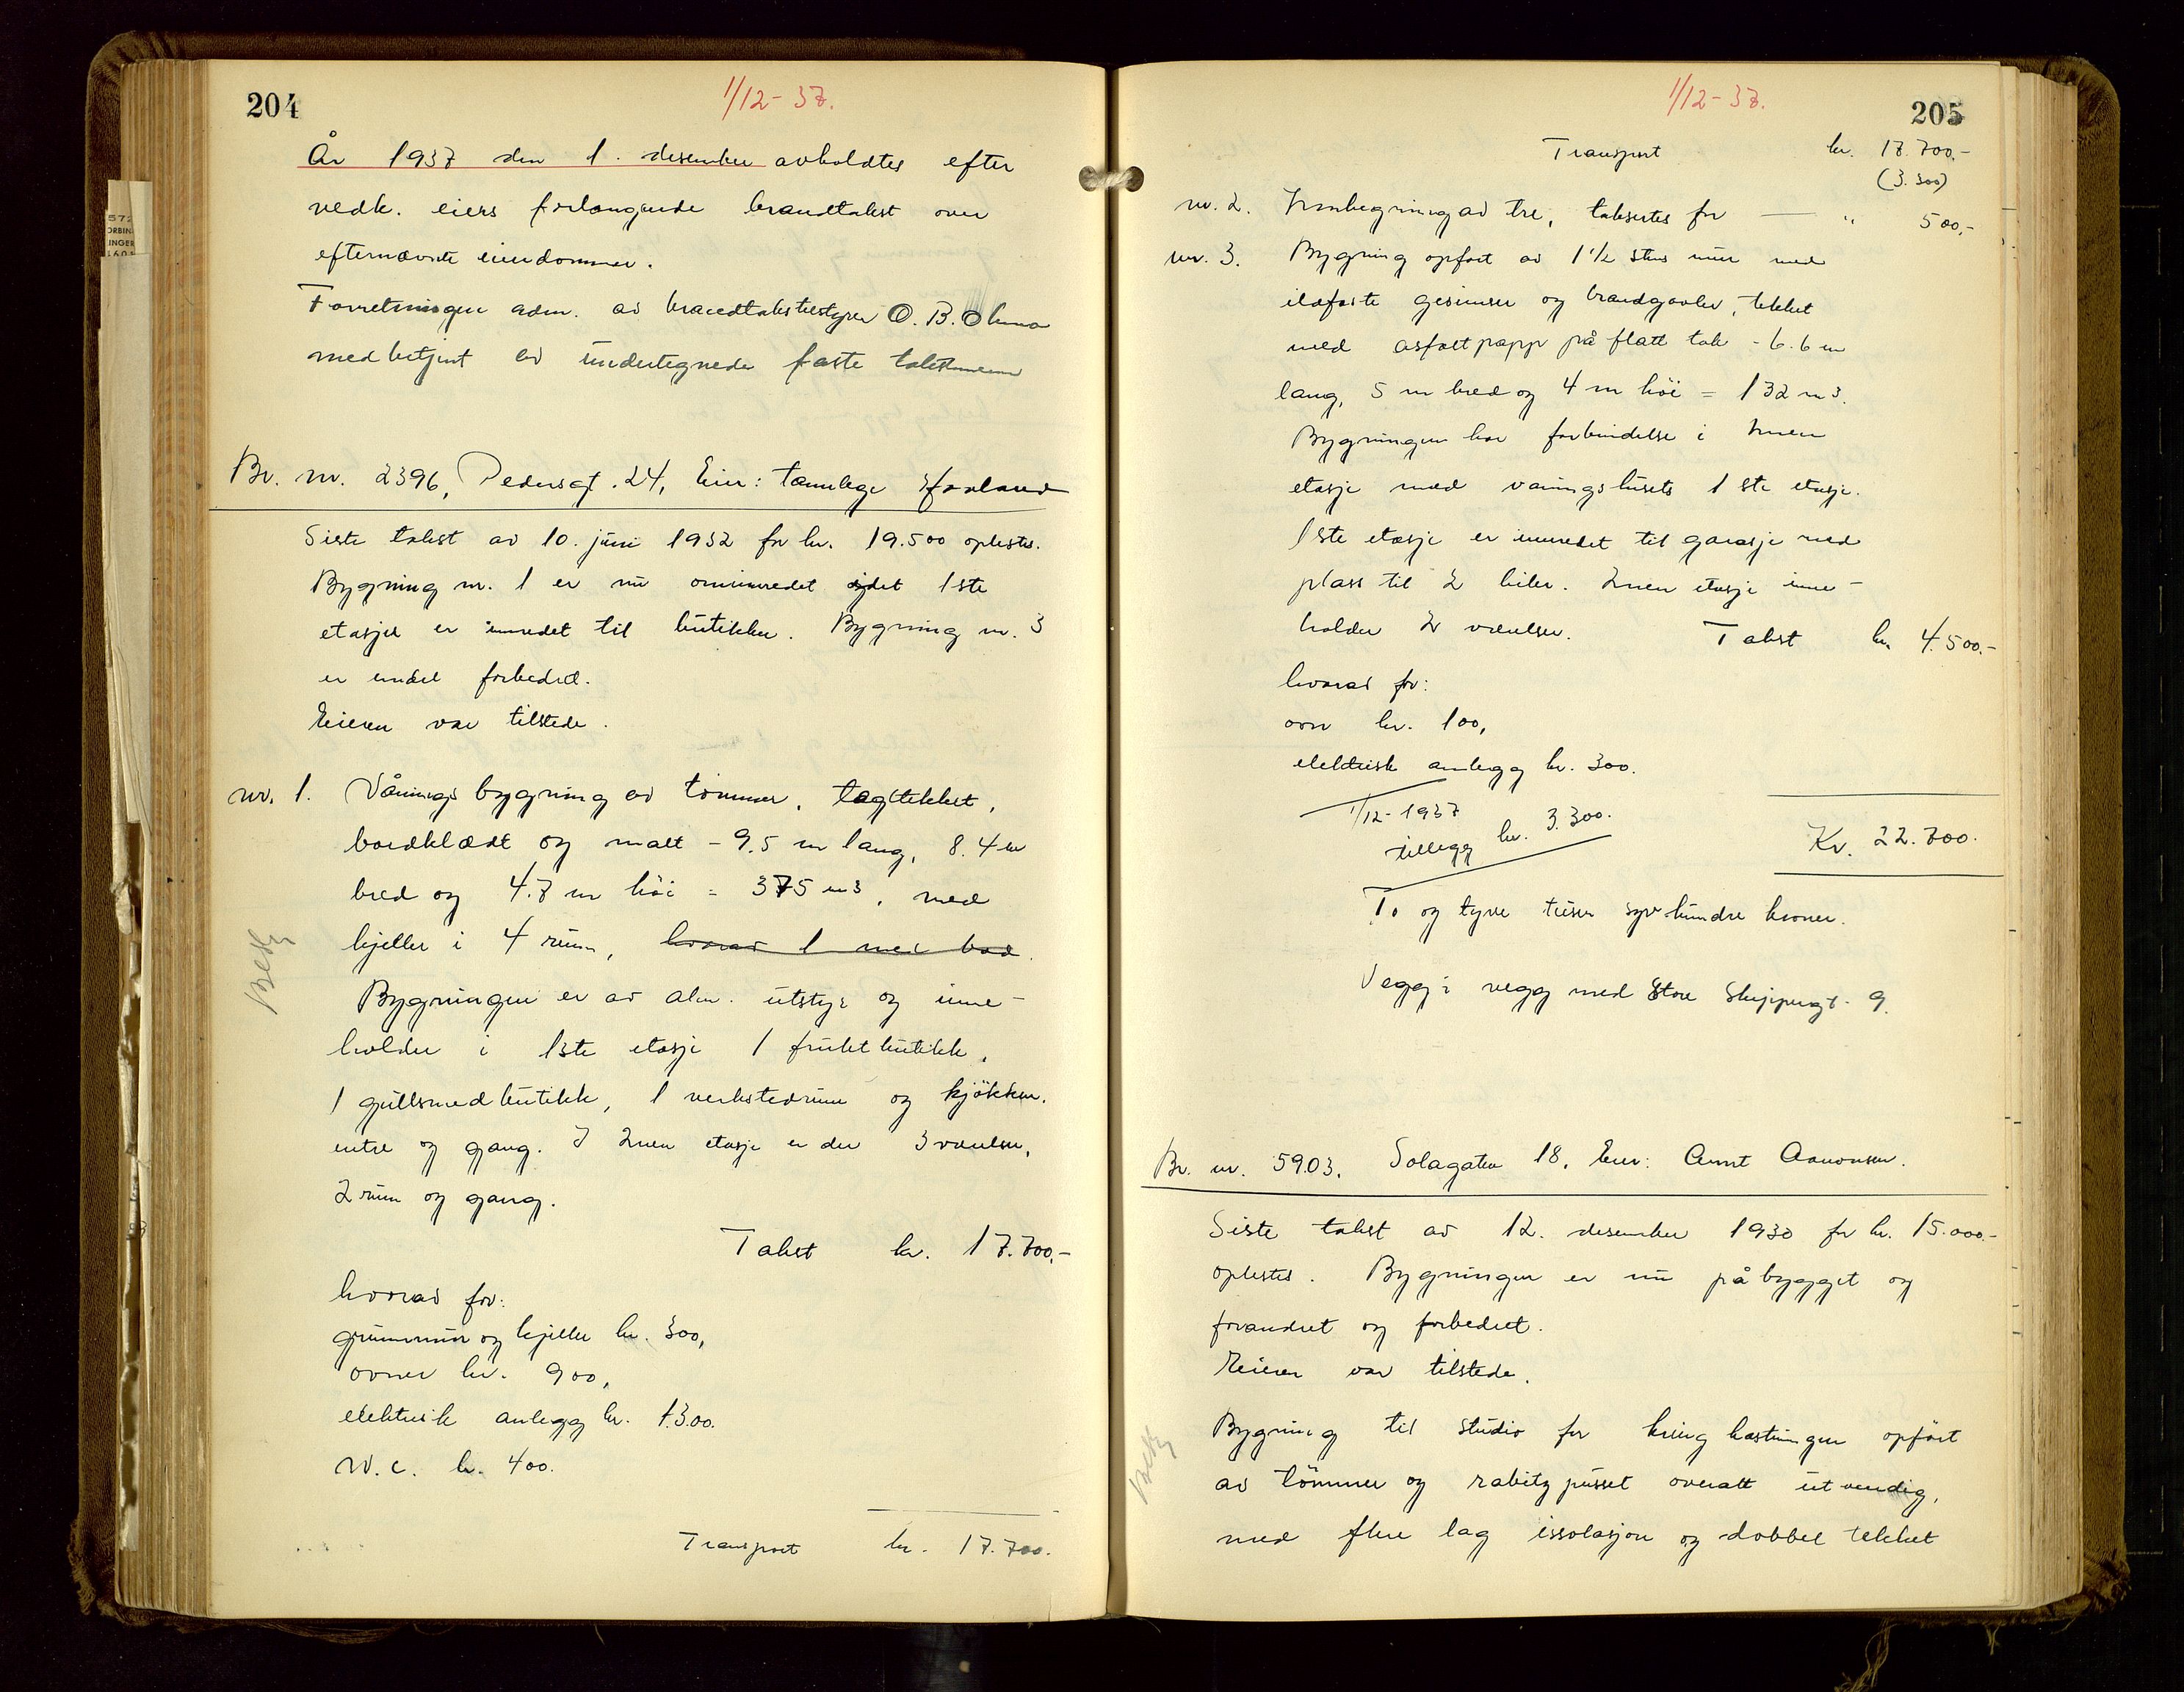 204
1/12-37.
År 1937 den 1. desember avholdtes efter
vedk. eiers forlangende brandtakst over
efternævnte eiendommer.
Forretningen adm. av brandtakstbestyrer O. B.
medbetjent av undertegnede faste takstmenn
Br. nr. 2396, Pedersgt. 24, Eier: tannlege Havland
Siste takst av 10. juni 1932 for kr. 19.500 oplestes.
Bygning nr. 1 er nu ominnredet idet 1ste
etasje er innredet til butikker. Bygning nr. 3
er endel forbedret.
Eieren var tilstede.
nr. 1. Våningsbygning av tømmer, tagtekket,
bordklædt og malt - 9.5 m lang, 8.4 m
bred og 4.7 m høi = 375 m3, med
kjeller i 4 rum, hvorav 1 med bad.
Betg
Bygningen er av alm. utstyr og inne-
holder i 1ste etasje 1 fruktbutikk,
1 gullsmedbutikk, 1 verkstedrum og kjøkken,
entre og gang. I 2nen etasje er der 3 værelser,
2 rum og gang.
Takst kr. 17.700,-
hvorav for:
grunnmur og kjeller kr. 300,
ovner kr. 900,
elektrisk anlegg kr. 1.300.
W.c. kr. 400.
Transport kr. 17.700.
1/12-37.
205
Transport kr. 17.700,-
(3.300)
nr. 2. av tre, taksertes for — " 500,-
nr. 3. Bygning opført av 1 1/2 stens mur med
ildfaste gesimser og brandgavler, tekket
med asfaltpapp på flatt tak - 6.6 m
lang, 5 m bred og 4 m høi = 132 m3.
Bygningen har forbindelse i 2nen
etasje med våningshusets 1ste etasje.
1ste etasje er innredet til garasje med
plass til 2 biler. 2nen etasje inne-
holder 2 værelser. Takst kr. 4.500.-
hvorav for:
ovn kr. 100,
elektrisk anlegg kr. 300.
1/12-1937
tillegg kr. 3.300.
Kr. 22.700.
To og tyve tusen syv hundre kroner.
Vegg i vegg med Store Skippergt. 9.
Br. nr. 5903. Solagaten 18. Eier: Arnt Aanonsen.
Siste takst av 12. desember 1930 for kr. 15.000.-
oplestes. Bygningen er nu påbygget og
forandret og forbedret.
Eieren var tilstede.
Betg
Bygning til studio for kringkastningen opført
av tømmer og rabitzpusset overalt utvendig,
med flere lag issolasjon og dobbel tekket